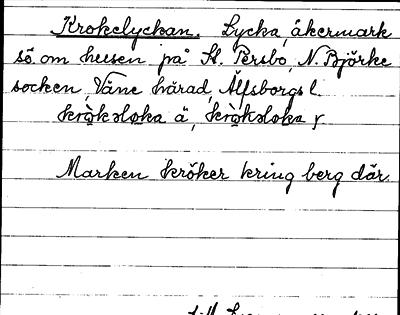 Krokelyckan. Lycka, åkermark
sö. om husen på St. Persbo, N. Björke
socken, Väne härad, Älfsborgs l.
Marken kröker kring berg där.